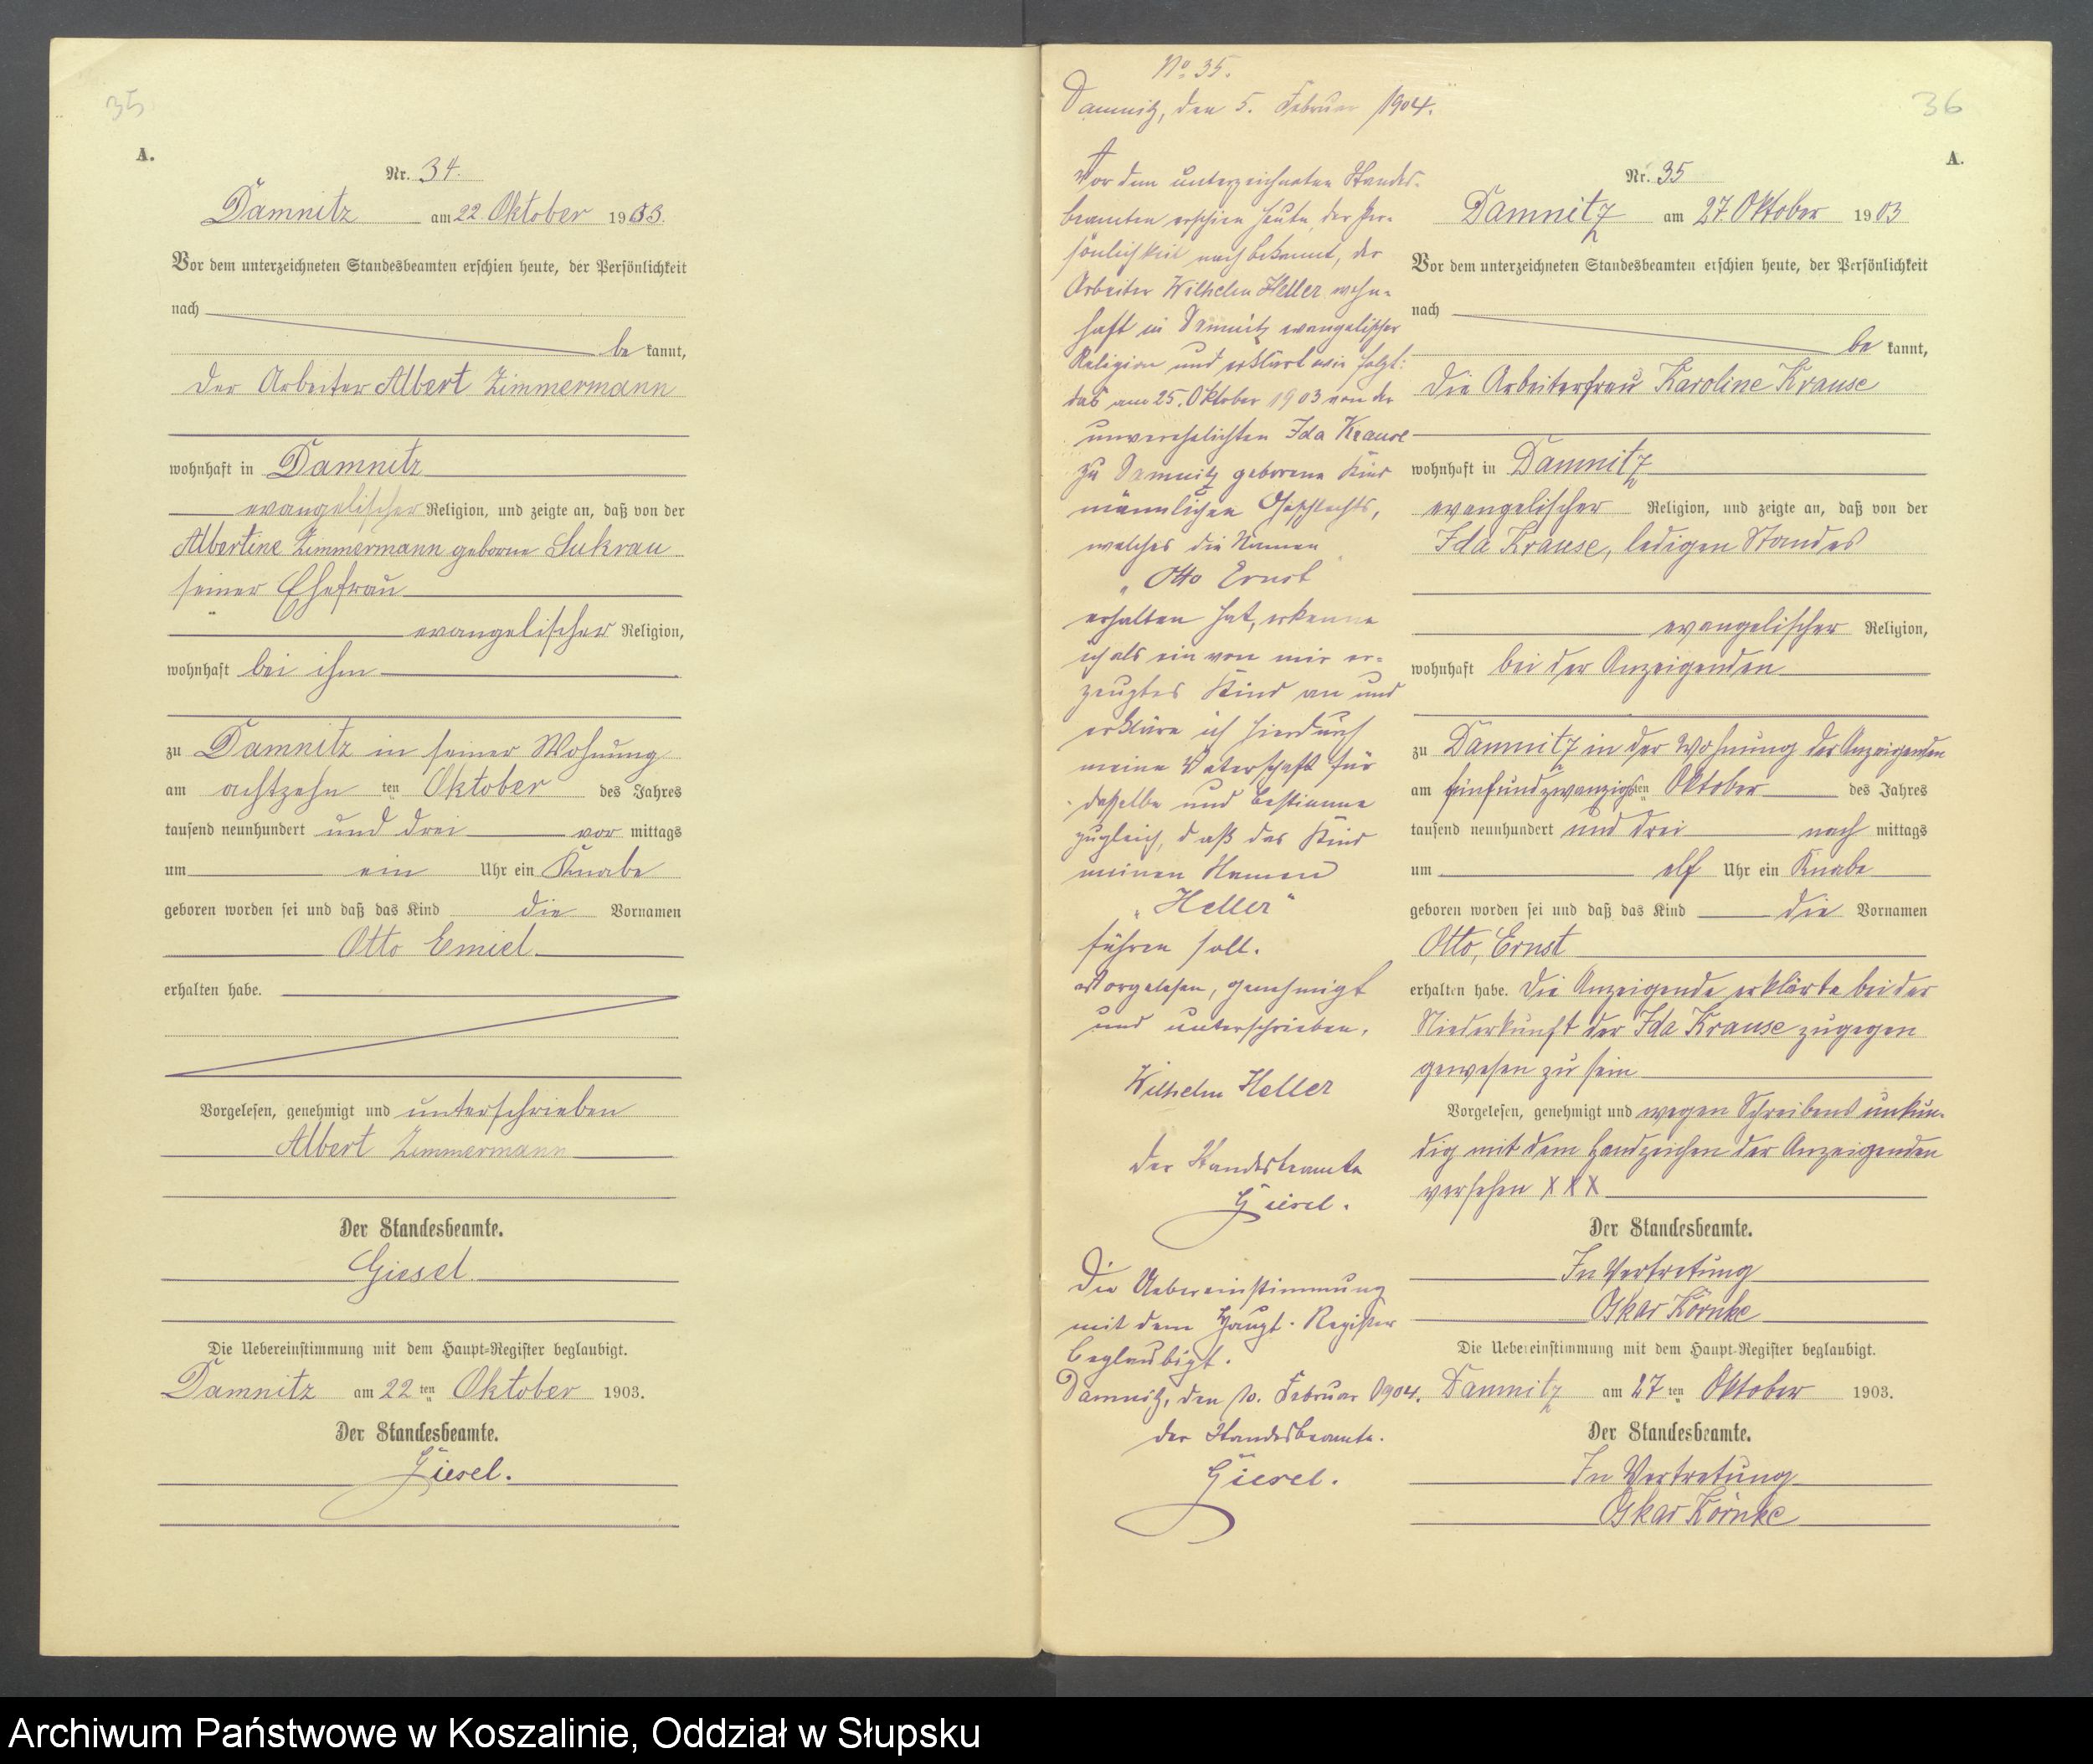 35
A.
Nr. 34.
Damnitz am 22 Oktober 1903.
Vor dem unterzeichneten Standesbeamten erschien heute, der Persönlichkeit
nach
be kannt,
der Arbeiter Albert Zimmermann
wohnhaft in Damnitz
evangelischer Religion, und zeigte an, daß von der
Albertine Zimmermann geborne Sukrau
seiner Ehefrau
evangelischer Religion,
wohnhaft bei ihm
zu Damnitz in seiner Wohnung
am achtzehn ten Oktober des Jahres
tausend neunhundert und drei vor mittags
um ein Uhr ein Knabe
geboren worden sei und daß das Kind die Vornamen
Otto Emiel
erhalten habe.
Vorgelesen, genehmigt und unterschrieben
Albert Zimmermann
Der Standesbeamte.
Giesel
Die Uebereinstimmung mit dem Haupt-Register beglaubigt.
Damnitz am 22 ten Oktober 1903.
Der Standesbeamte.
Giesel.
No 35.
Damnitz, den 5. Februar 1904.
Vor dem unterzeichneten Standes-
beamten erschien heute, der Per-
sönlichkeit nach bekannt, der
Arbeiter Wilhelm Heller wohn-
haft in Damnitz evangelischer
Religion und erklärt wie folgt:
das am 25. Oktober 1903 von der
unverehelichten Ida Krause
zu Damnitz geborene Kind
männlichen Geschlechts,
welches die Namen
„Otto Ernst"
erhalten hat, erkenne
ich als ein von mir er-
zeugtes Kind an und
erkläre ich hierdurch
meine Vaterschaft für
dasselbe und bestimme
zugleich, daß das Kind
meinen Namen
„Heller"
führen soll.
Vorgelesen, genehmigt
und unterschrieben.
Wilhelm Heller
Der Standesbeamte
Giesel.
Die Uebereinstimmung
mit dem Haupt-Register
beglaubigt.
Damnitz, den 10. Februar 1904.
Der Standesbeamte.
Giesel.
36
A.
Nr. 35
Damnitz am 27 Oktober 1903
Vor dem unterzeichneten Standesbeamten erschien heute, der Persönlichkeit
nach
be kannt,
die Arbeiterfrau Karoline Krause
wohnhaft in Damnitz
evangelischer Religion, und zeigte an, daß von der
Ida Krause, ledigen Standes
evangelischer Religion,
wohnhaft bei der Anzeigenden
zu Damnitz in der Wohnung der Anzeigenden
am fünfundzwanzigsten Oktober des Jahres
tausend neunhundert und drei nach mittags
um elf Uhr ein Knabe
geboren worden sei und daß das Kind die Vornamen
Otto, Ernst
erhalten habe. Die Anzeigende erklärte bei der
Niederkunft der Ida Krause zugegen
gewesen zu sein
Vorgelesen, genehmigt und wegen Schreibens unkun-
dig mit dem Handzeichen der Anzeigenden
versehen X X X
Der Standesbeamte.
In Vertretung
Oskar Körnke
Die Uebereinstimmung mit dem Haupt-Register beglaubigt.
Damnitz am 27 ten Oktober 1903.
Der Standesbeamte.
In Vertretung
Oskar Körnke
Archiwum Państwowe w Koszalinie, Oddział w Słupsku